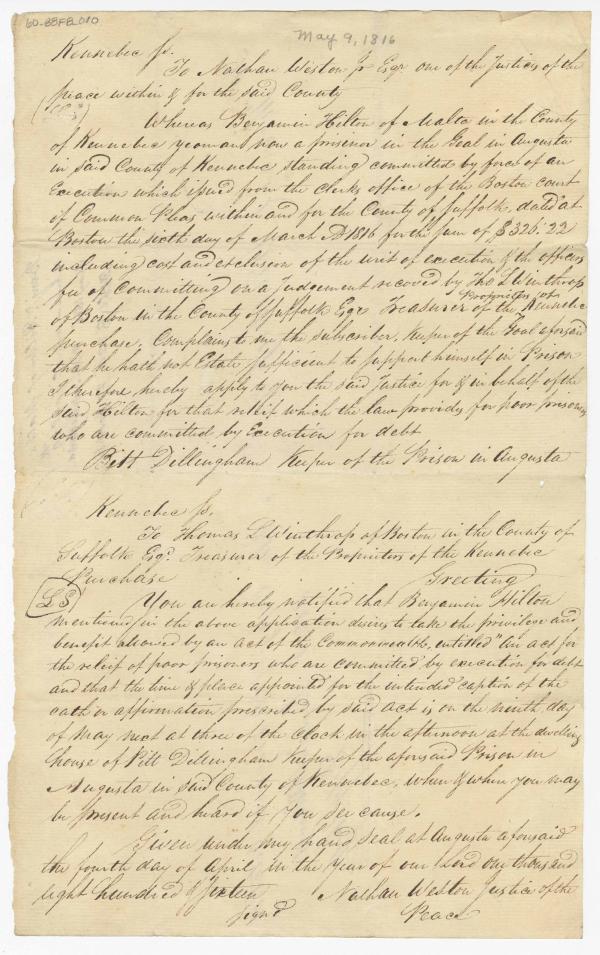 60-88F8.010
May 9, 1816
Kennebec Ss.
To Nathan Weston Jr Esqr one of the Justices of the
peace within & for the said County
Whereas Benjamin Hilton of Malta in the County
of Kennebec yeoman now a prisoner in the Goal in Augusta
in said County of Kennebec standing committed by force of an
Execution which issued from the Clerks office of the Boston court
of Common Pleas within and for the County of Suffolk, dated at
Boston the sixth day of March AD 1816 for the sum of $326.22
including cost and exclusion of the writ of execution & the officers
fee of Committing on a Judgement recoved by Tho L Winthrop
of Boston in the County of Suffolk Esqr Treasurer of the Proprietors of Kennebec
purchase. Complains to me the subscriber, Keeper of the Goal aforesaid
that he hath not Estate sufficient to support himself in Prison
I therefore hereby apply to you the said Justice for & in behalf of the
said Hilton for that releif which the law provides for poor prisoners
who are committed by Execution for debt
Pitt Dillingham Keeper of the Prison in Augusta
Kennebec Ss.
To Thomas L Winthrop of Boston in the County of
Suffolk Esqr. Treasurer of the Proprietors of the Kennebec
Purchase Greeting
LS
You are hereby notified that Benjamin Hilton
mentioned in the above application desires to take the privilege and
benefit allowed by an act of the Commonwealth, entitled "An act for
the relief of poor prisoners who are committed by execution for debt
and that the time & place appointed for the intended caption of the
oath or affirmation prescribed by said Act is on the ninth day
of May next at three of the Clock in the afternoon at the dwelling
house of Pitt Dillingham Keeper of the aforesaid Prison in
Augusta in said County of Kennebec, when & where you may
be present and heard if you see cause.
Given under my hand seal at Augusta aforesaid
the fourth day of April in the year of our Lord one thousand
eight hundred & sixteen Nathan Weston Justice of the
signd Peace